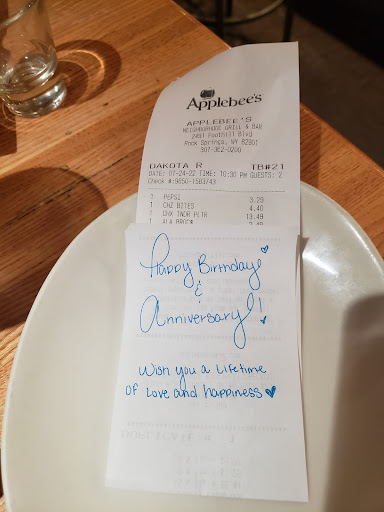 Applebee's
APPLEBEE'S
NEIGHBORHOOD GRILL & BAR
2491 Foothill Blvd
Rock Springs, WY 82901
307-362-0200
DAKOTA R TB#21
DATE: 07-24-22 TIME: 10:30 PM GUESTS: 2
Check #:9650-1583743
1 PEPSI 3.29
1 CHZ BITES 4.40
1 CHX TNDR PLTR 13.49
Happy Birthday
&
Anniversary!
Wish you a lifetime
of love and happiness